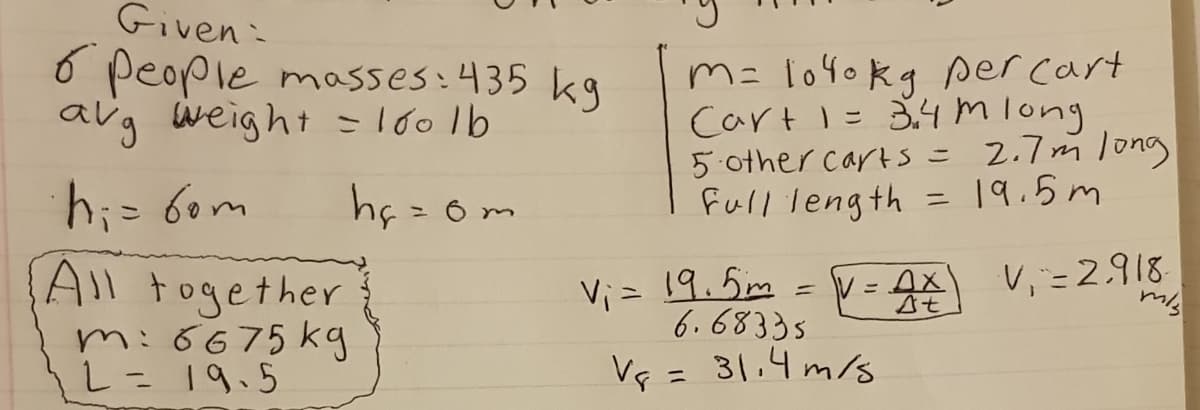 Given:
6 people masses: 435 kg
avg weight = 160 lb
hi = 60m hf = 0m
All together
m: 6675 kg
L = 19.5
m = 1040 kg per cart
Cart 1 = 3.4 m long
5 other carts = 2.7m long
Full length = 19.5 m
Vi = 19.5m / 6.6833s = V = Δx/Δt Vi = 2.918 m/s
Vf = 31.4 m/s